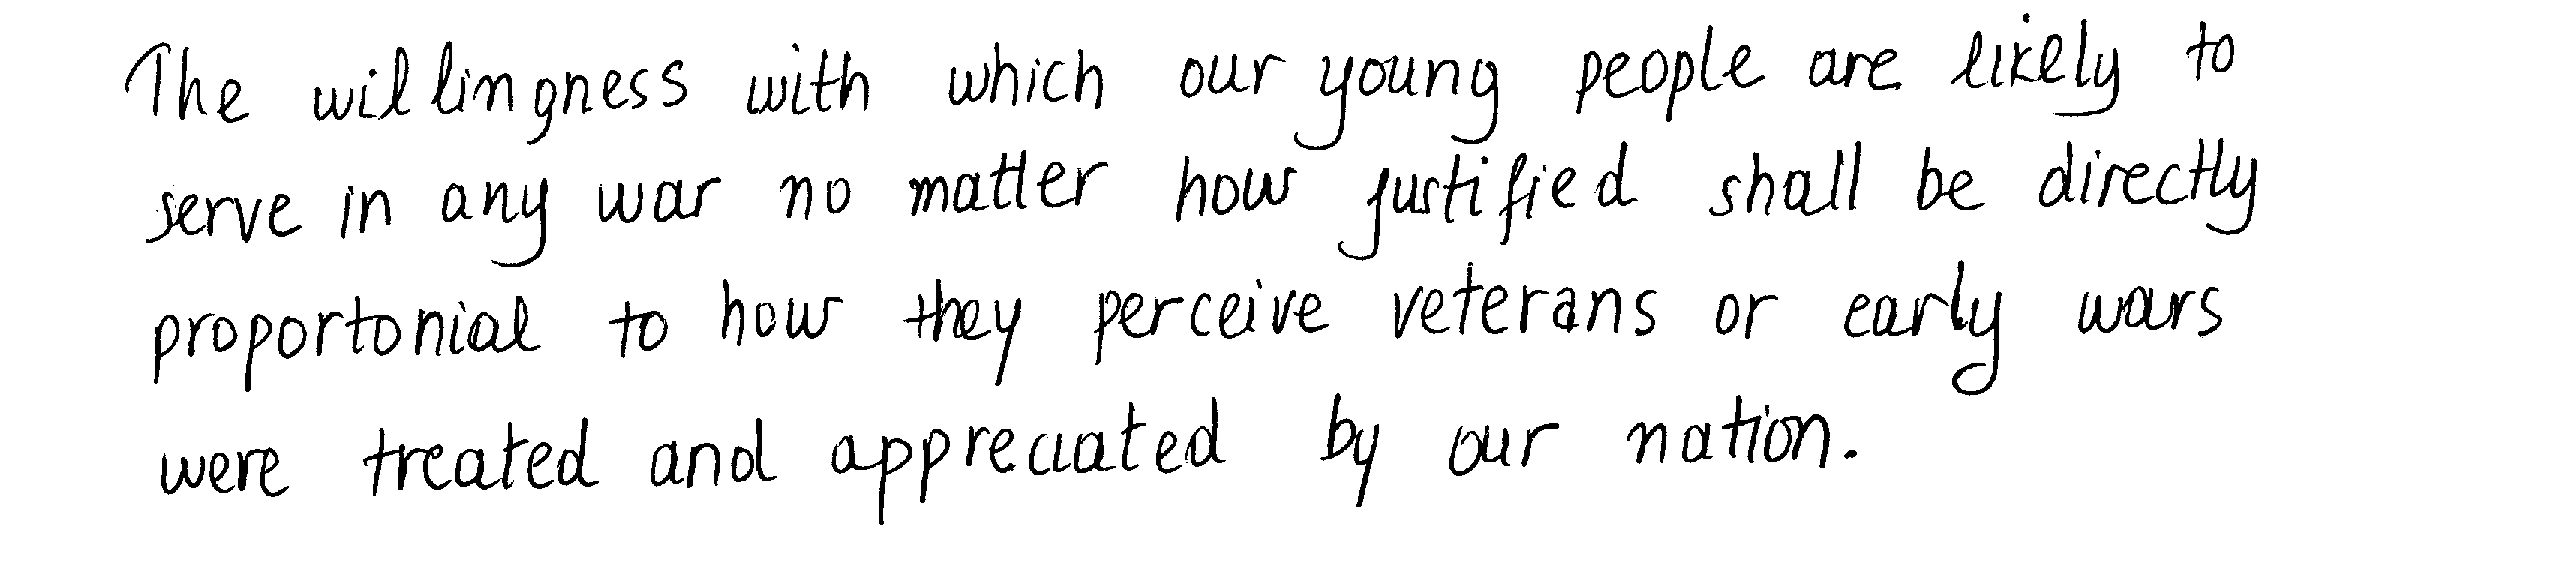 The willingness with which our young people are likely to
serve in any war no matter how justified shall be directly
proportonial to how they perceive veterans or early wars
were treated and appreciated by our nation.